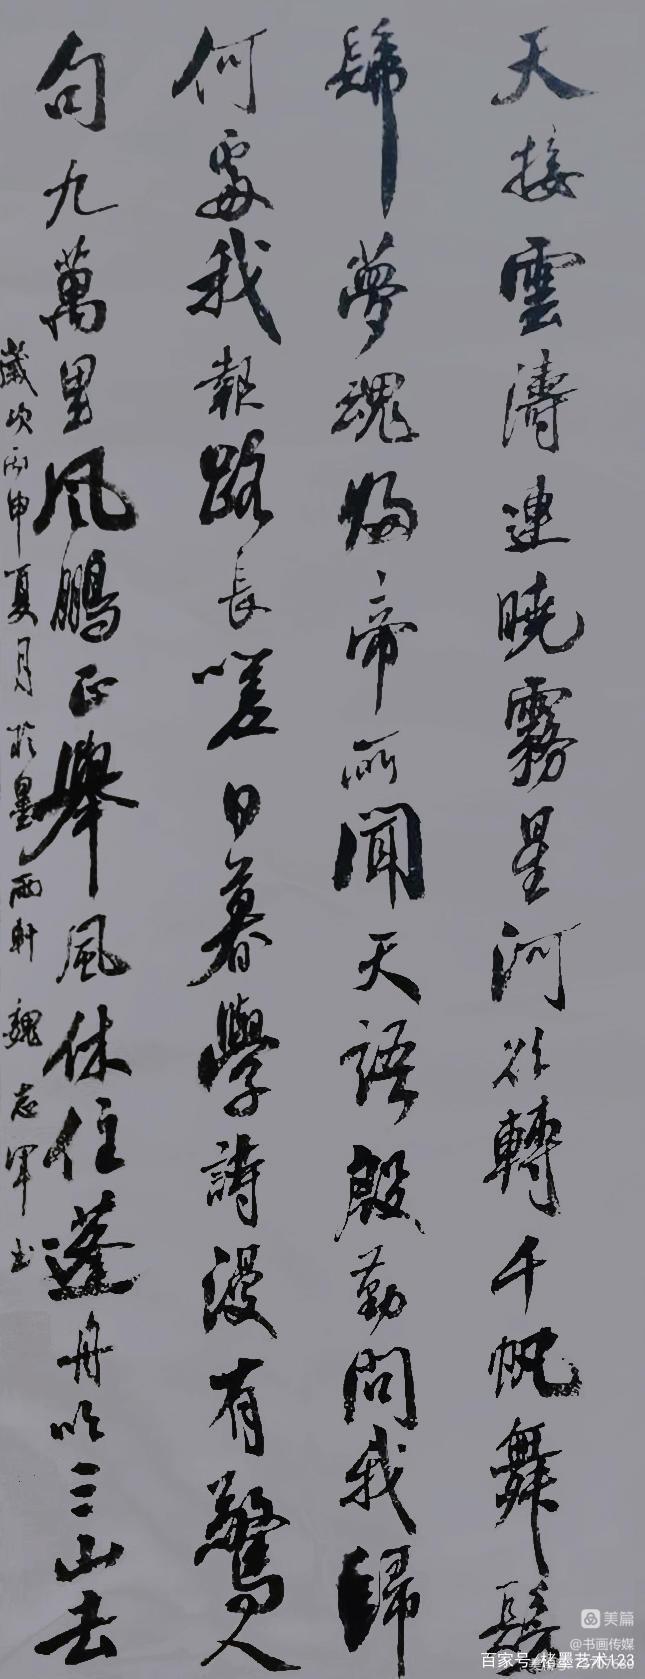 天接雲濤連曉霧星河欲轉千帆舞髣
髴夢魂歸帝所聞天語殷勤問我歸
何處我報路長嗟日暮學詩漫有驚人
句九萬里風鵬正舉風休住蓬舟吹三山去
歲次丙申夏月於墨雨軒 魏志軍书
美篇
@书画传媒
百家号_楮墨艺术123